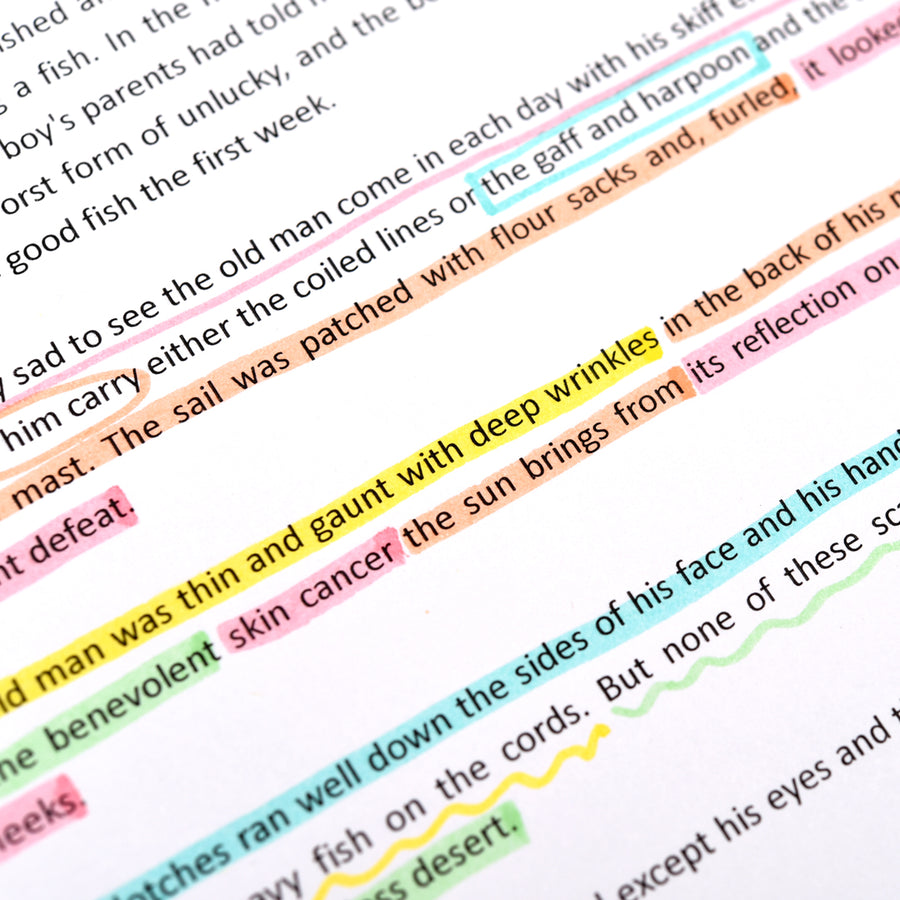 ished
a fish. In the
boy's parents had told
orst form of unlucky, and the
good fish the first week.
y sad to see the old man come in each day with his skiff
him carry either the coiled lines or the gaff and harpoon and the
mast. The sail was patched with flour sacks and, furled, it looked
nt defeat.
ld man was thin and gaunt with deep wrinkles in the back of his
ne benevolent skin cancer the sun brings from its reflection on
heeks.
lotches ran well down the sides of his face and his hand
avy fish on the cords. But none of these sca
ess desert.
except his eyes and